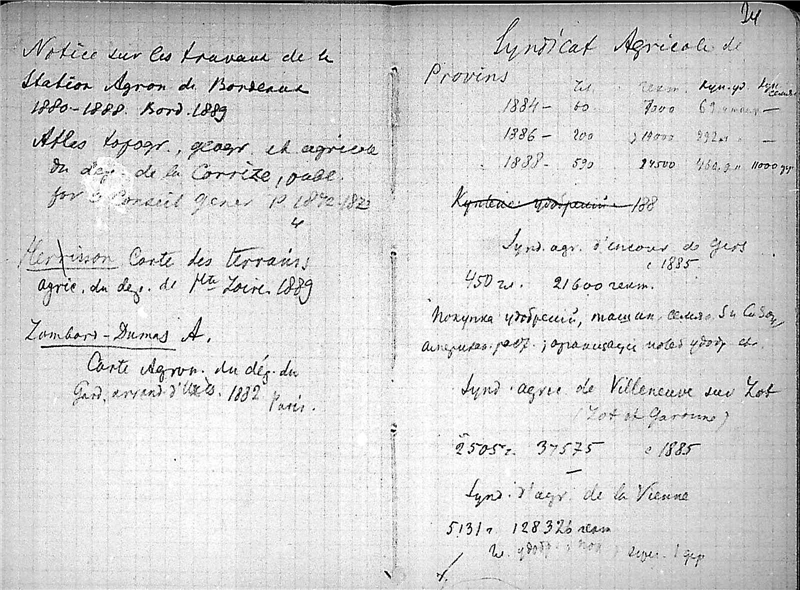 Notice sur les travaux de la
Station Agron. de Bordeaux
1880-1888. Bord. 1889
Atlas topogr., geogr. et agricole
du dep. de la Corrèze, publ.
Conseil gener P. 1872-1873
4
Herrisson Carte des terrains
agric. du dep. de Hte Loire. 1889
Lombard-Dumas A.
Carte Agron. du dép. du
Gard, arrond. d'Uzès. 1882 Paris.
24
Syndicat Agricole de
Provins
чл. гект.
1884 - 60 7000
1886 - 200
1888 - 590 24500 11000
Купленс удобрений 188
Synd. agr. d'encour. de Gers
с 1885.
450 чл. 21600 гект.
Покупка удобрений, машин, семян.
организация
Synd. agric de Villeneuve sur Lot
(Lot et Garonne)
2505 ч. 37575 с 1885
Synd. d'agr. de la Vienne
5131 ч 128326 гект
удобр.